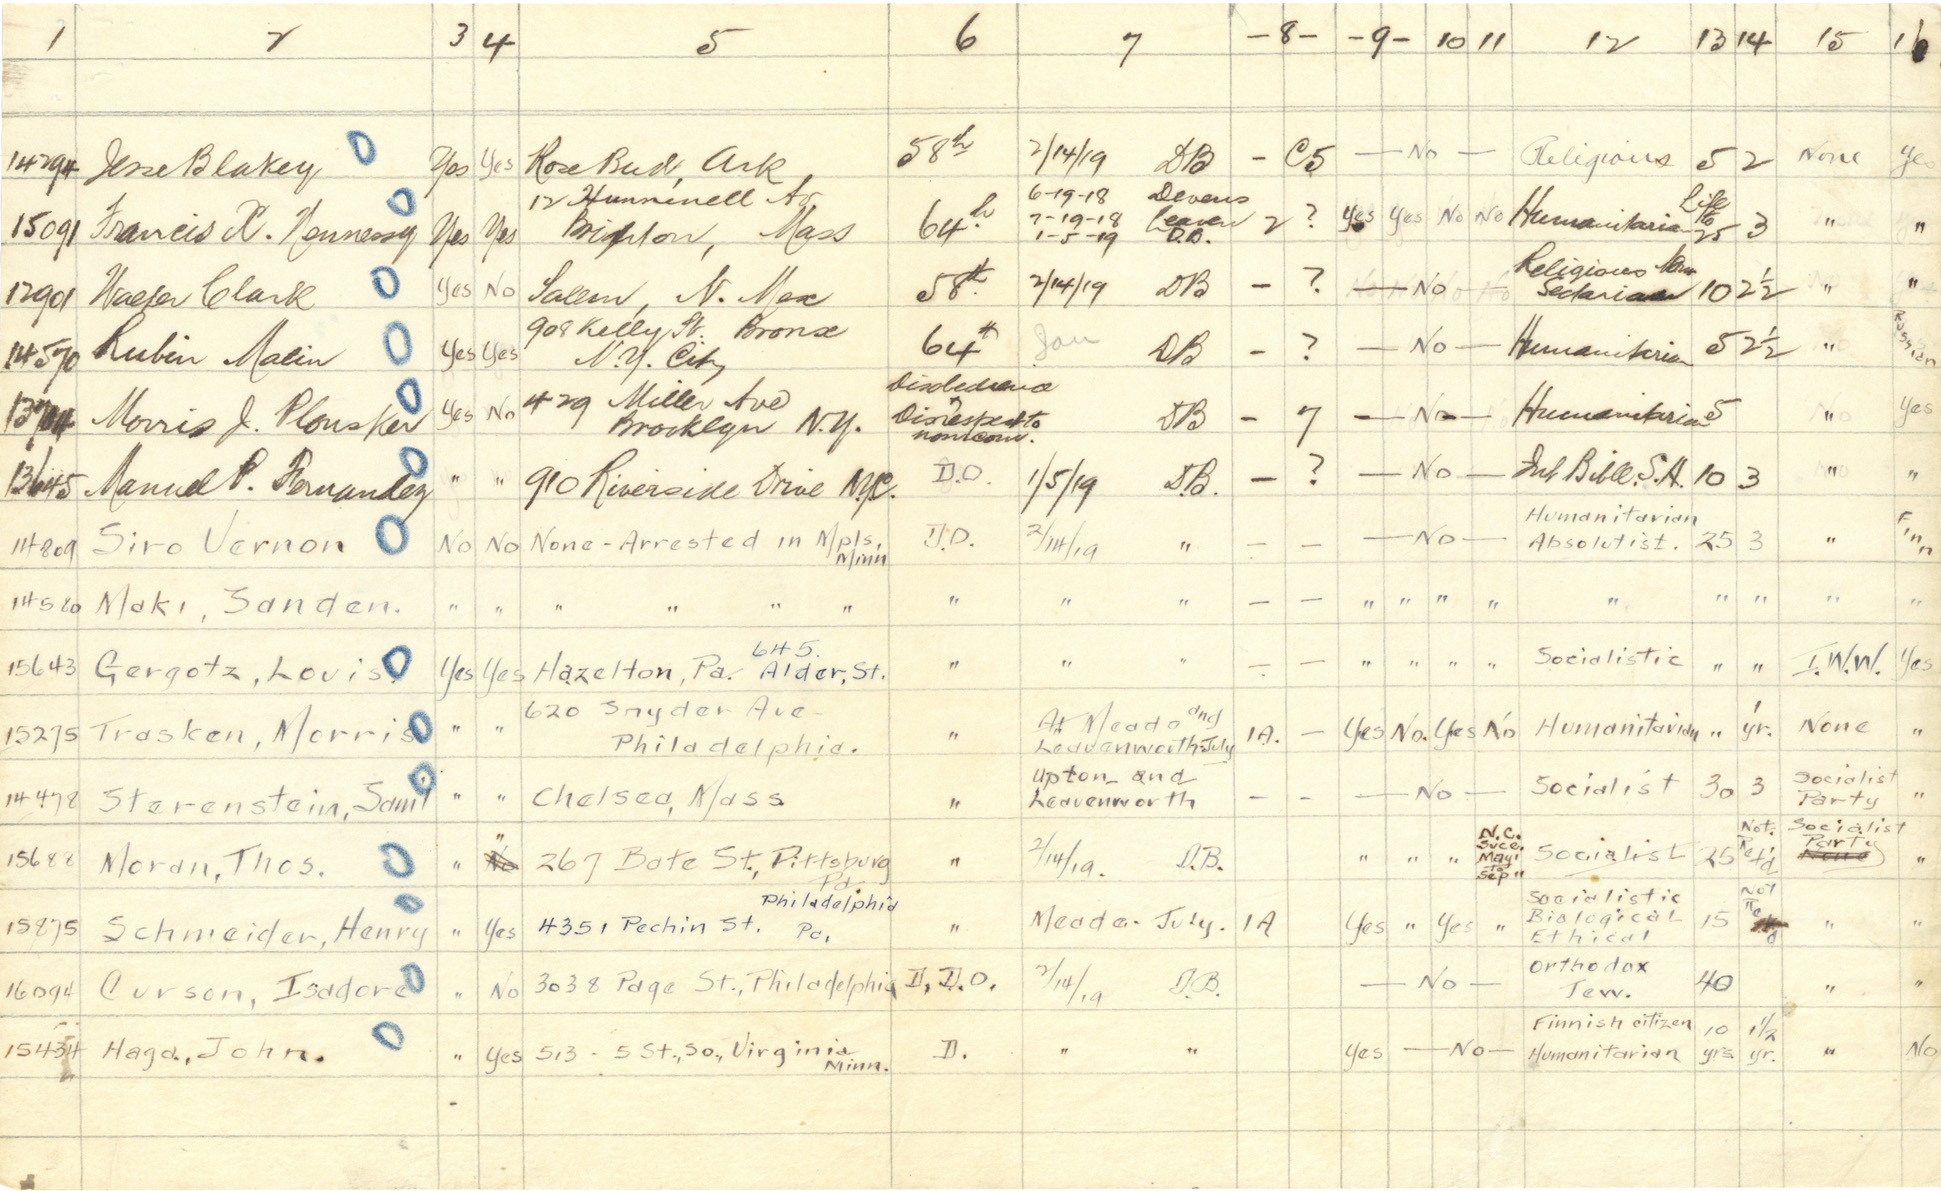 1 2 3 4 5 6 7 -8- -9- 10 11 12 13 14 15 16
14294 Jesse Blakey Yes Yes Rose Bud, Ark 58th 2/14/19 DB - C5 — No — Religious 5 2 None Yes
12 Hunnewell Av 6-19-18 Devens Life
15091 Francis X. Hennessy Yes Yes Brighton, Mass 64th 7-19-18 Leaven 2 ? Yes Yes No No Humanitarian to 3 " "
1-5-19 D.B. 25
Religious Non
12901 Clark Yes No Salem, N. Mex 58th 2/14/19 DB - ? — No — Sectarian 10 2½ " "
908 Kelly St. Bronx
14570 Rubin Malin Yes Yes N.Y. City 64th Jan DB - ? — No — Humanitarian 5 2½ " Russian
Disobedience
13704 Morris J. Plonsker Yes No 429 Miller Ave Disrespect to DB - 7 — No — Humanitarian 5 " Yes
Brooklyn N.Y. noncom.
13645 Manuel P. Fernandez " " 910 Riverside Drive NYC. D.O. 1/5/19 D.B. - ? — No — Int Bible. S.A. 10 3 " "
Humanitarian
14809 Siro Vernon No No None-Arrested in Mpls, D.O. 2/14/19 " — — — No — Absolutist. 25 3 " Finn
Minn
14580 Maki, Sanden. " " " " " " " " " — — " " " " " " " " "
645.
15643 Gergotz, Louis Yes Yes Hazelton, Pa. Alder, St. " " " — — " " " " Socialistic " " I.W.W. Yes
620 Snyder Ave At Meade and 1
15275 Trasken, Morris " " Philadelphia. " Leavenworth-July 1A. — Yes No. Yes No Humanitarian " yr. None "
Upton and Socialist
14478 Sterenstein, Saml " " Chelsea, Mass " Leavenworth - - — No — Socialist 30 3 Party "
" N.C. Not. Socialist
15688 Moran, Thos. " No 267 Bate St., Pittsburg " 2/14/19. D.B. " " " Since Socialist 25 Ret'd Party "
Pa. May' to Sep " None
Philadelphia Socialistic Not
15875 Schmeider, Henry " Yes 4351 Pechin St. Pa. " Meade- July. 1A Yes " Yes " Biological 15 Ret'd " "
Ethical
Orthodox
16094 Curson, Isadore " No 3038 Page St., Philadelphia D, D.O. 2/14/19 D.B. — No — Jew. 40 " "
Finnish citizen 10 1½
15434 Haga, John. " Yes 513 - 5 St., So., Virginia D. " " Yes — No — Humanitarian yrs yr. " No
Minn.